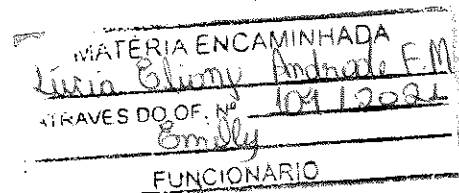 MATÉRIA ENCAMINHADA
Lúcia Eliany Andrade F.M
ATRAVÉS DO OF. Nº 109 / 2021
Emilly
FUNCIONÁRIO